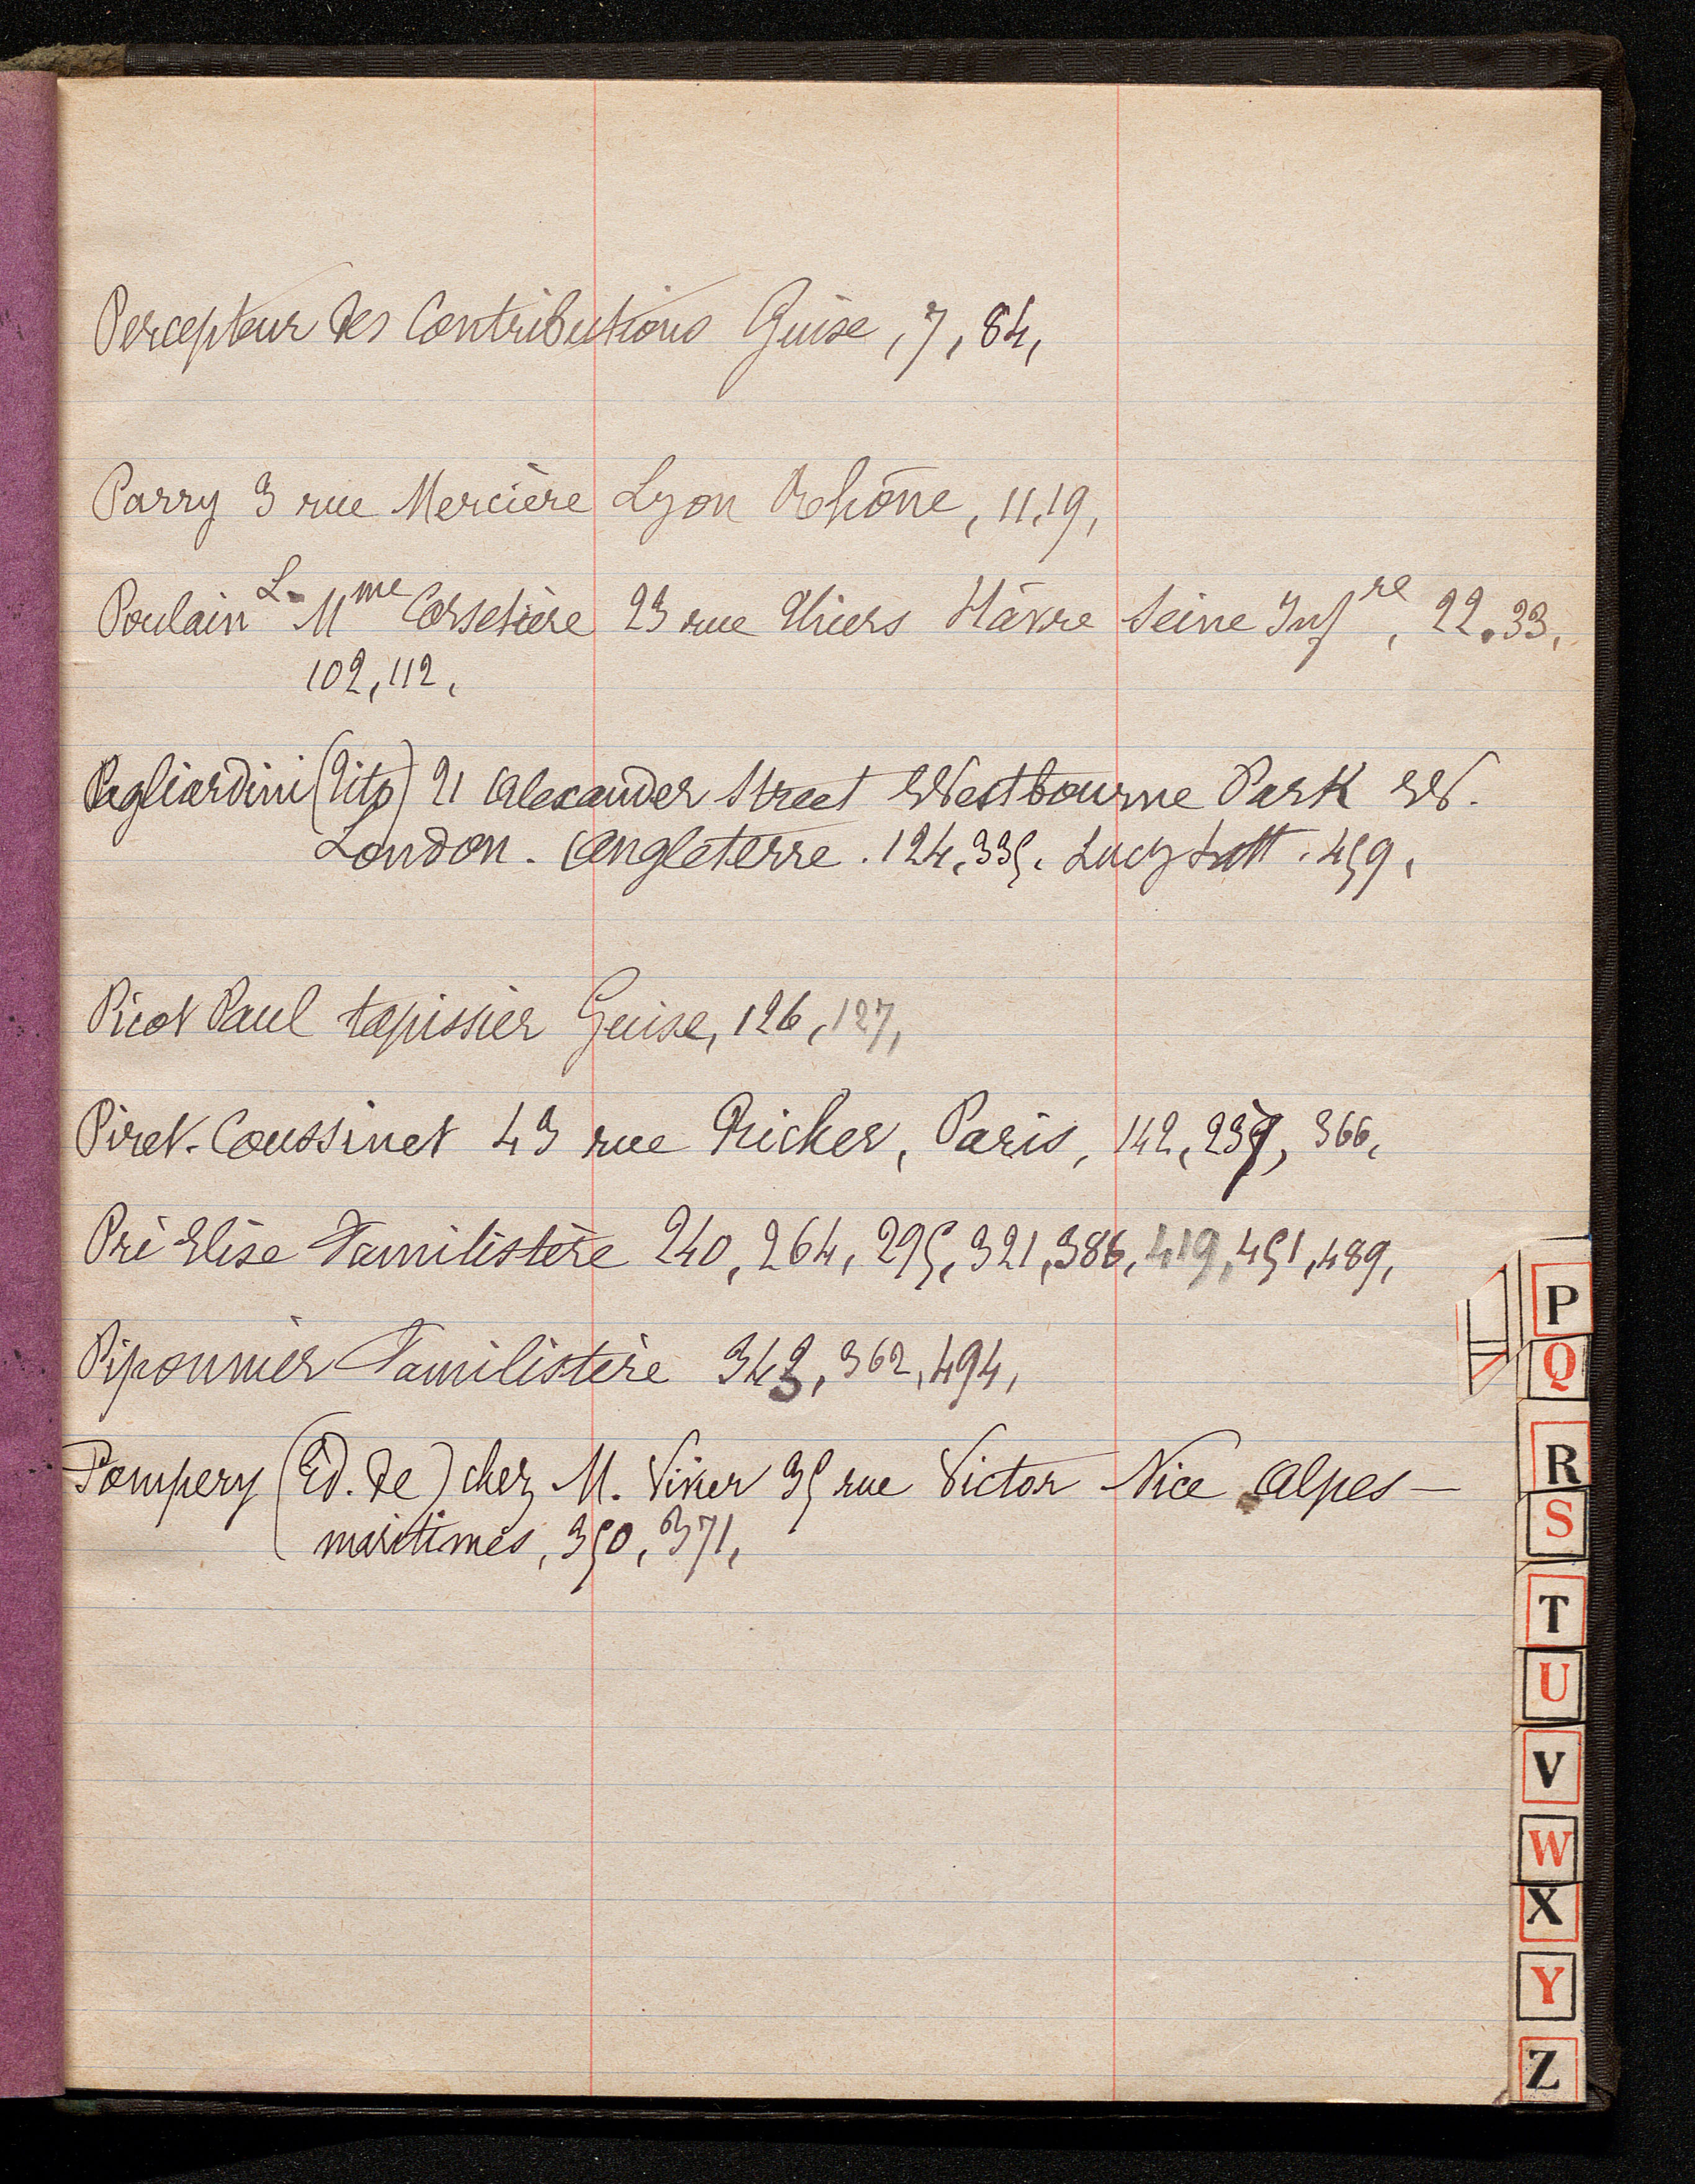 Percepteur des Contributions Guise, 7, 84,
Parry 3 rue Mercière Lyon Rhône, 11, 19,
Poulain L. Mme Corsetière 23 rue Thiers Hâvre Seine Infre, 22. 33,
102, 112,
Pagliardini (Tito) 21 Alexander Street Westbourne Park W.
London. Angleterre. 124, 335. Lucy Latt. 459,
Picot Paul tapissier Guise, 126, 127,
Piret-Coussinet 43 rue Richer, Paris, 142, 237, 366,
Pré Elise Familistère 240, 264, 295, 321, 386, 419, 451, 489,
Piponnier Familistère 343, 362, 494,
Pompery (Ed. de) chez M. Viner 35 rue Victor Nice Alpes-
maritimes, 350, 371,
P
Q
R
S
T
U
V
W
X
Y
Z